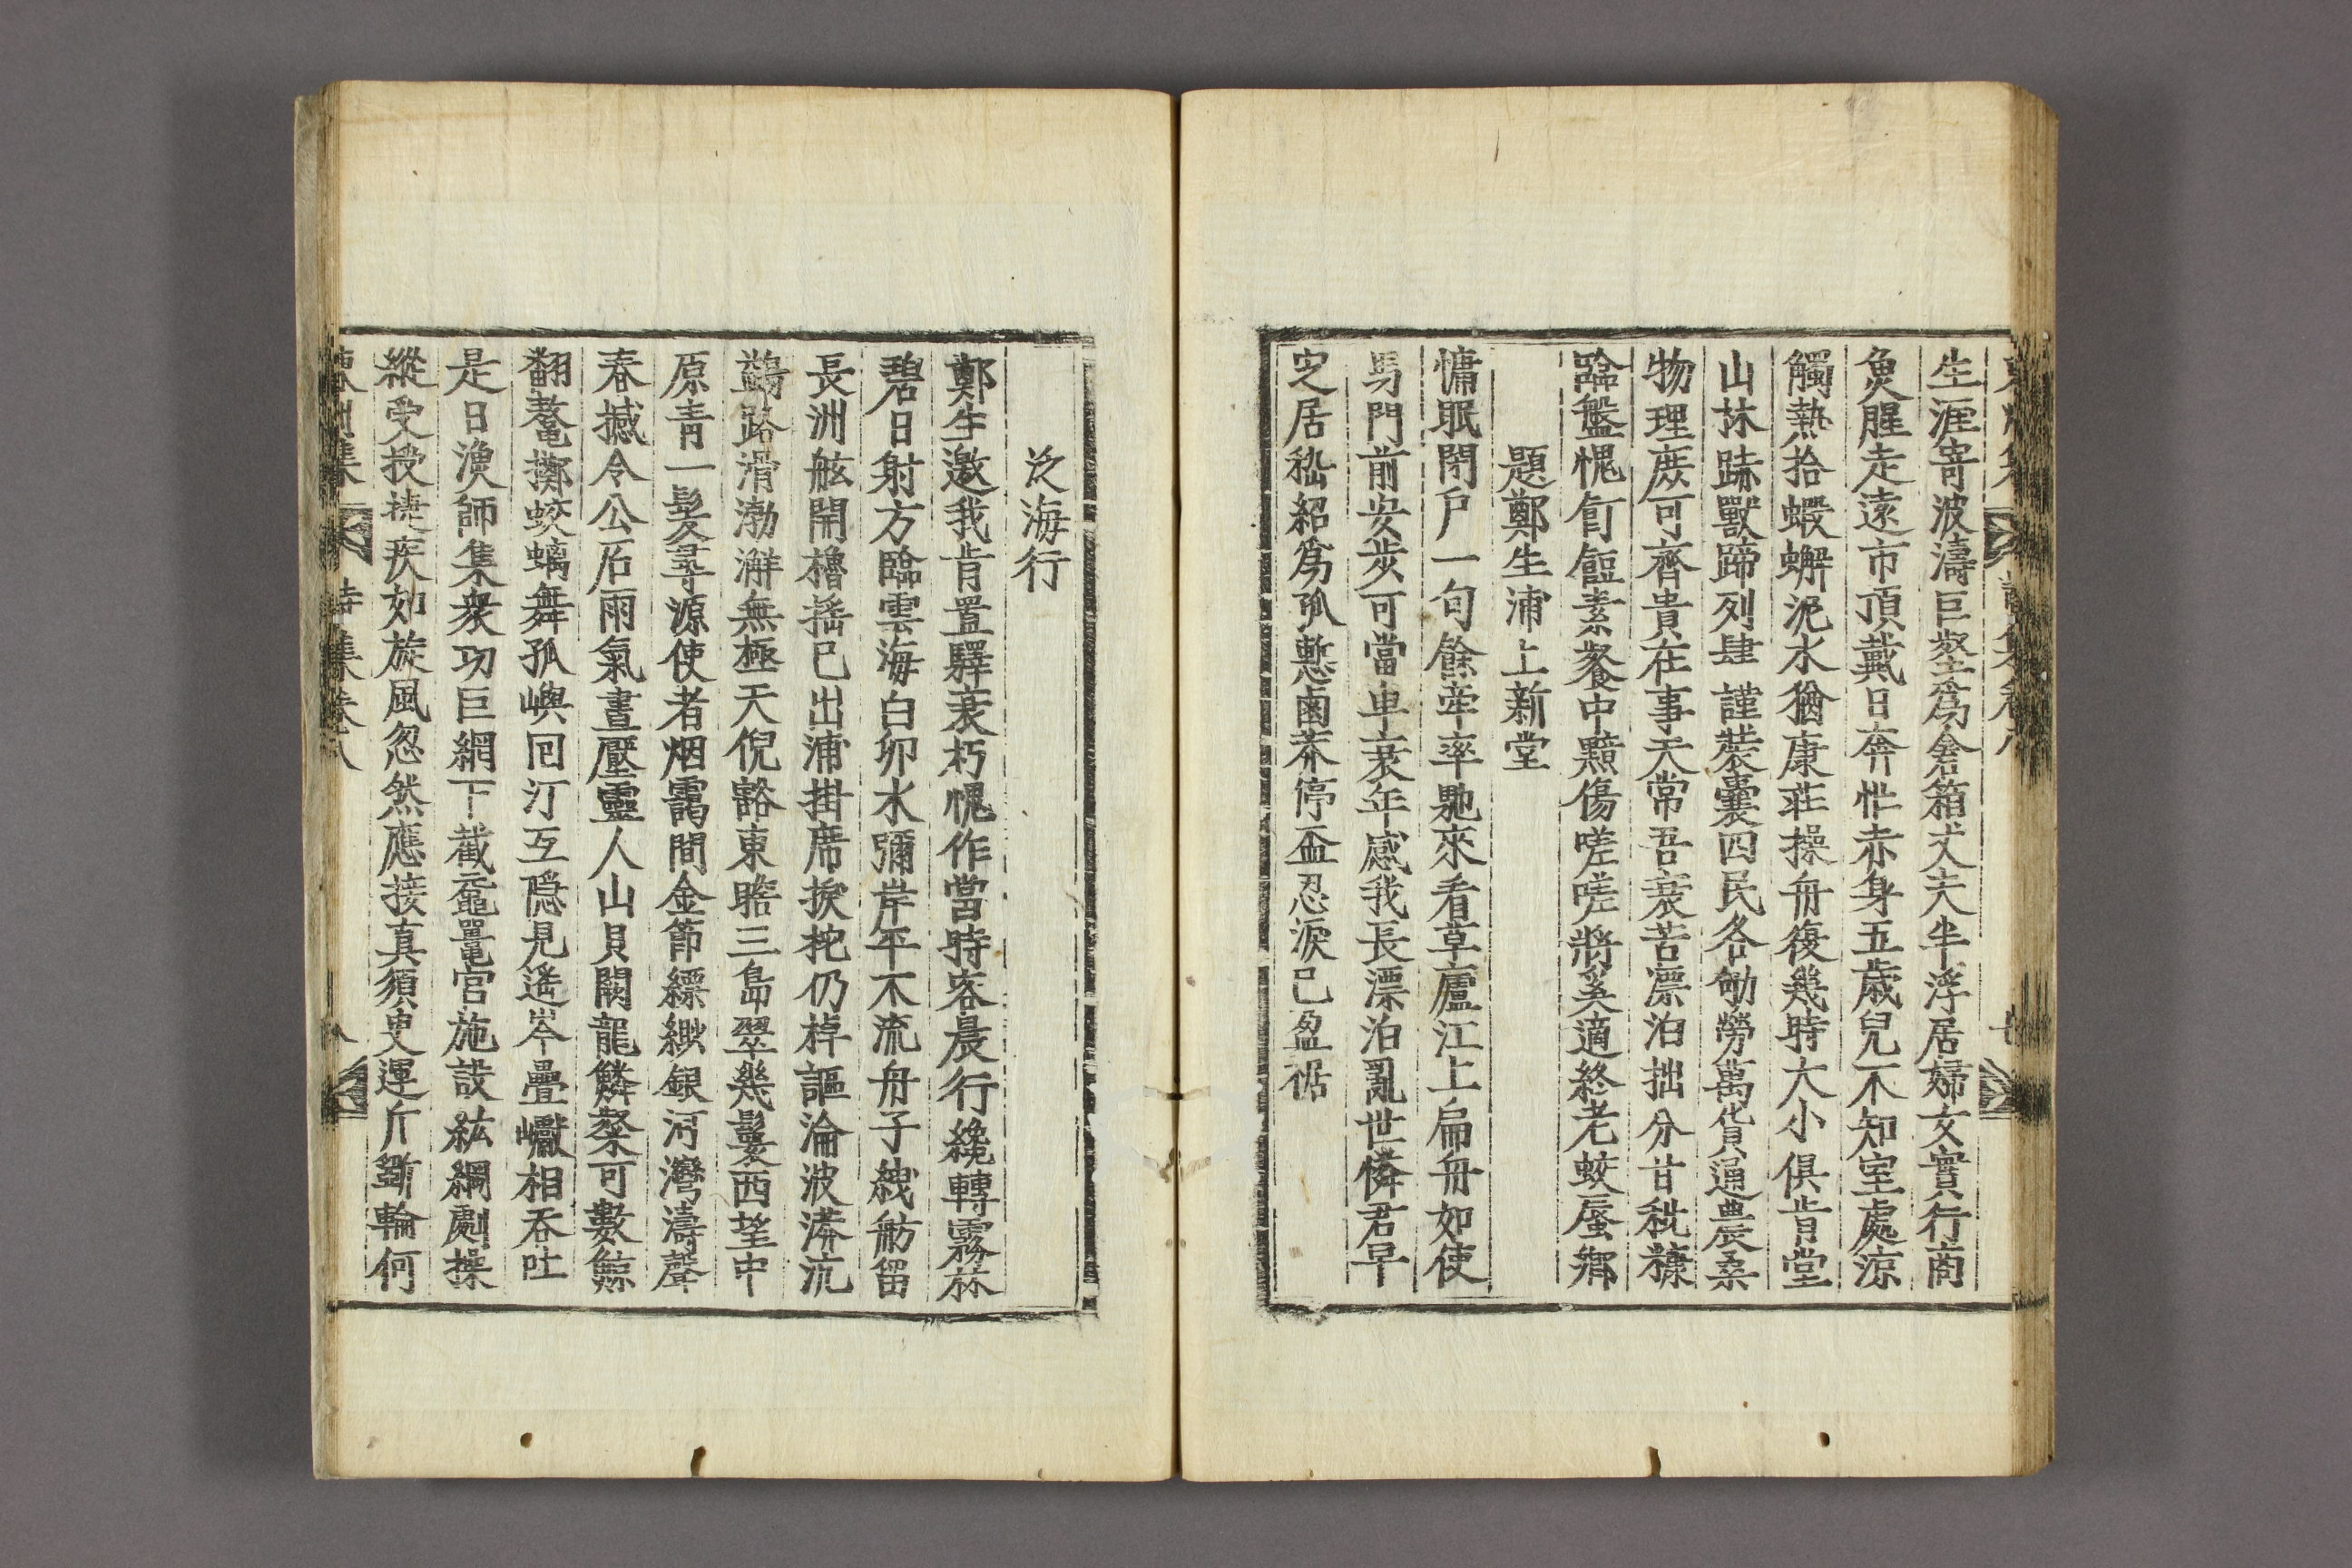 生涯寄波濤巨壑爲倉箱丈夫半浮居婦女實行商
魚腥走遠市頂戴日奔忙赤身五歲兒不知室處凉
觸熱拾蝦蠏泥水猶康莊操舟復幾時大小俱肯堂
山林跡獸蹄列肆謹裝囊四民各劬勞萬貨通農桑
物理庶可齊貴在事天常吾衰苦漂泊拙分甘秕糠
踰盤愧飣餖素餐中黯傷嗟嗟將奚適終老蛟蜃鄉
題鄭生浦上新堂
慵眠閉戶一句餘牽率馳來看草廬江上扁舟如使
馬門前安步可當車衰年感我長漂泊亂世憐君早
定居嵇紹爲孤慙鹵莽停盃忍淚已盈裾
泛海行
鄭生邀我肯置驛衰朽愧作當時客晨行纔轉霧林
碧日射方臨雲海白卯水彌岸平不流舟子綫舫留
長洲舷開櫓搖已出浦掛席捩柁仍棹謳淪波漭沆
鷁路滑渤澥無極天倪豁東瞻三島翠幾鬟西望中
原靑一髮尋源使者烟靄間金節縹緲銀河灣濤聲
春撼令公石雨氣晝壓靈人山貝闕龍鱗粲可數鯨
翻鼇擲蛟螭舞孤嶼回汀互隱見遙岑疊巘相呑吐
是日漁師集衆功巨網下截黿鼉宮施設紘綱劇操
縱受授捷疾如旋風忽然應接眞須臾運斤斲輪何
東州集 詩集卷八 八